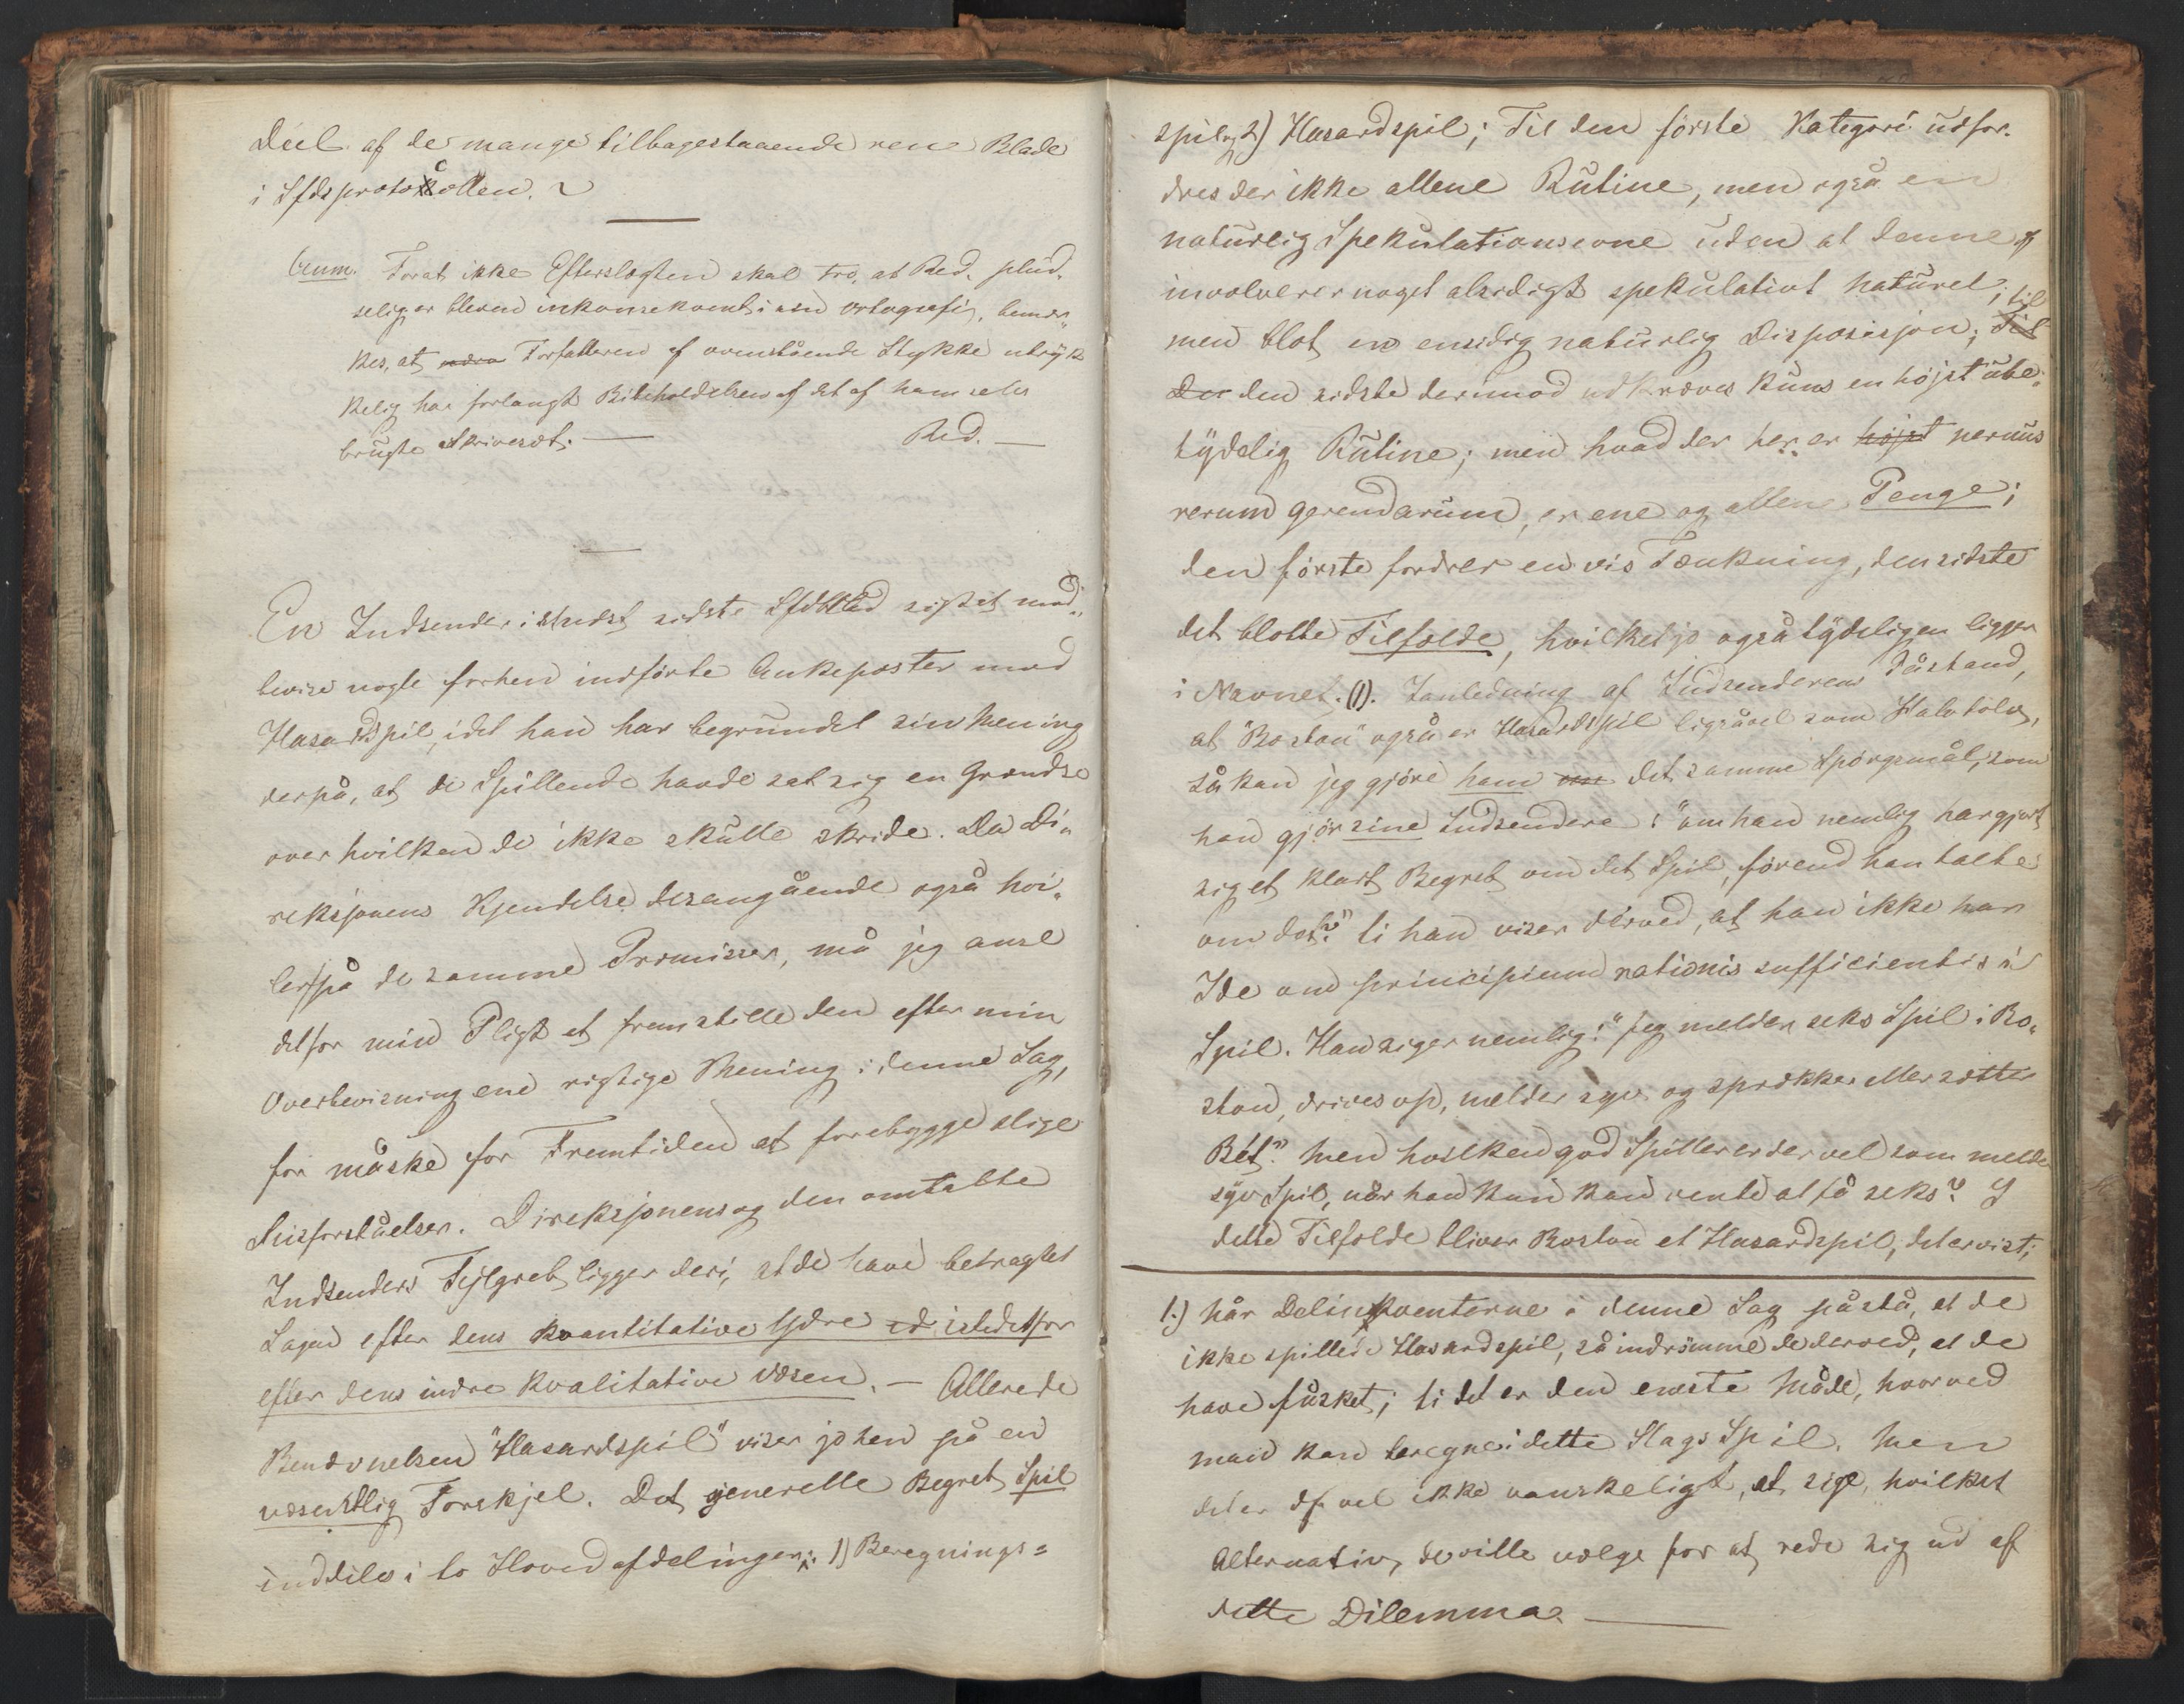 Deel af de mange tilbagestaaende rene Blade
i Sfdsprotokollen. 2
Anm. Forat ikke Efterslægten skal tro, at Red. plud-
selig er bleven inkonsekvent i sin Ortografi, bemær-
kes, at Forfatteren af ovenstående Stykke udtryk
kelig har forlangt Bibeholdelsen af det af ham selv
brugte Skrivesæt. — Red. —
En Indsender i sidste Sfdsblad sigtet mod-
bevise nogle forhen indførte Ankeposter mod
Hasardspil, idet han har begrundet sin Mening
derpå, at de Spillende havde sat sig en Grændse
over hvilken de ikke skulle skride. Da Di-
reksjonens Kjendelse desangående også hvi-
ler på de samme Præmisser, må jeg anse
det for min Pligt at fremstille den efter min
Overbevisning ene rigtige Mening i denne Sag,
for måske for Fremtiden at forebygge slige
Misforståelser. Direksjonens og den omtalte
Indsenders Fejlgreb ligger deri, at de have betragtet
Sagen efter dens kvantitative Ydre istedetfor
efter dens indre kvalitative Væsen. — Allerede
Benævnelsen "Hasardspil" viser jo hen på en
væsentlig Forskjel. Det generelle Begreb Spil
inddeles i to Hovedafdelinger: 1) Beregnings=
spil og 2) Hasardspil; Til den første Kategori udfor-
dres der ikke allene Rutine, men også en
naturlig Spekulationsevne uden at denne
involverer noget alsidigt spekulativt Naturel;
men blot en ensidig naturlig Disposisjon; til
den sidste derimod udkræves kuns en højst ube-
tydelig Rutine; men hvad der her er højst nervus
rerum gerendarum, er ene og allene Penge;
den første fordrer en vis Tænkning, den sidste
det blotte Tilfælde, hvilket jo også tydeligen ligger
i Navnet. (1). I anledning af Indsenderens Påstand,
at "Boston" også er Hasardspil ligsåvel som Halvtolv,
så kan jeg gjøre ham det samme Spørgsmål, som
han gjør sine Indsendere: "om han nemlig har gjort
sig et klart Begreb om det Spil, førend han talte
om det?" ti han viser derved, at han ikke har
Ide om principium rationis sufficientis i
Spil. Han siger nemlig: "jeg melder seks Spil i Bo-
ston, drives op, melder syv og sprækker eller sætter
Bét." Men hvilken god Spiller er der vel som melder
syv Spil, når han kun kan vente at få seks? I
dette Tilfælde bliver Boston et Hasardspil, det er vist;
1.) Når Delinkventerne i denne Sag påstå, at de
ikke spillede Hasardspil, så indrømme de derved, at de
have fusket; ti det er den eneste Måde, hvorved
man kan beregne i dette Slags Spil. Men
det er vel ikke vanskeligt, at sige, hvilket
Alternativ, de ville vælge for at rede sig ud af
dette Dilemma. —